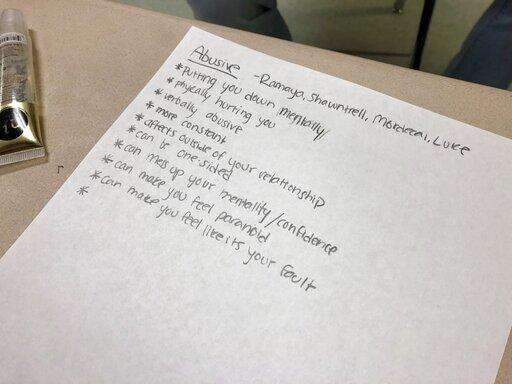 Abusive - Ramaya, Shawntrell, Mordecai, Luke
* Putting you down mentally/
* phycally hurting you
* verbally abusive
* more constant
* affects outside of your relationship
* can be one sided
* can mess up your mentality/confidence
* can make you feel paranoid
* can make you feel like its your fault